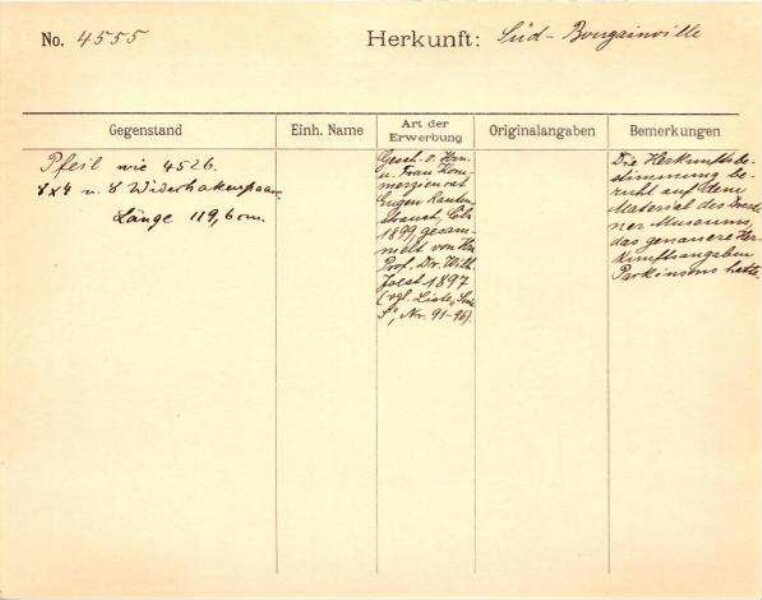 No. 4555 Herkunft: Süd-Bougainville
Gegenstand
Einh. Name
Art der
Erwerbung
Originalangaben
Bemerkungen
Pfeil wie 4526.
8x4 u. 8 Widerhakenpaare,
Länge 119,6 cm.
Gesch. v. Hrn.
u. Frau Kom-
merzienrat
Eugen Rauten-
strauch, Cöln
1899, gesam-
melt von Hn.
Prof. Dr. Wilh.
Joest 1897
(vgl. Liste,
Nr. 91-96).
Die Herkunftsbe-
stimmung be-
ruht auf dem
Material des Dresde-
ner Museums,
das genauere Her-
kunftsangaben
Parkinsons hatte.